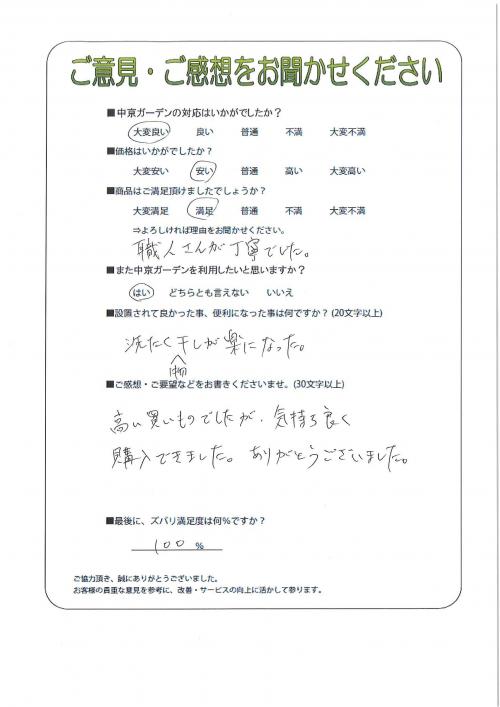 ご意見・ご感想をお聞かせください
■中京ガーデンの対応はいかがでしたか？
大変良い 良い 普通 不満 大変不満
■価格はいかがでしたか？
大変安い 安い 普通 高い 大変高い
■商品はご満足頂けましたでしょうか？
大変満足 満足 普通 不満 大変不満
⇒よろしければ理由をお聞かせください。
職人さんが丁寧でした。
■また中京ガーデンを利用したいと思いますか？
はい どちらとも言えない いいえ
■設置されて良かった事、便利になった事は何ですか？(20文字以上)
洗たく干しが楽になった。
物
■ご感想・ご要望などをお書きくださいませ。(30文字以上)
高い買いものでしたが、気持ち良く
購入できました。ありがとうございました。
■最後に、ズバリ満足度は何％ですか？
100 %
ご協力頂き、誠にありがとうございました。
お客様の貴重な意見を参考に、改善・サービスの向上に活かして参ります。